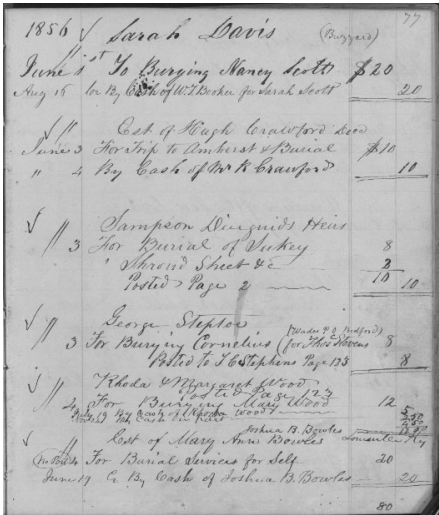 77
1856 Sarah Davis (Buzzard)
June 1st To Burying Nancy Scott $20
Aug 16 Cr By Cash of W. T. Booker for Sarah Scott 20
Est of Hugh Crawford Decd
June 3 For Trip to Amherst & Burial $10
" 4 By Cash of Mr R Crawford 10
Sampson Diuguids Heirs
3 For Burial of Sukey 8
" Shroud Sheet &c 2
Posted Page 2 10 10
George Steptoe
(Wades P.O. Bedford)
3 For Burying Cornelius (for Thos Stevens 8
Posted to T C Stephens Page 123 8
Rhoda & Margaret Wood
Posted Page 123
4 For Burying Mary Wood 12
July 19 By Cash of Rhoda Wood 5.
By Cash in part
Joshua B. Bowles
Est of Mary Ann Bowles
4 For Burial Services for Self 20
June 19 Cr By Cash of Joshua B. Bowles 20
80